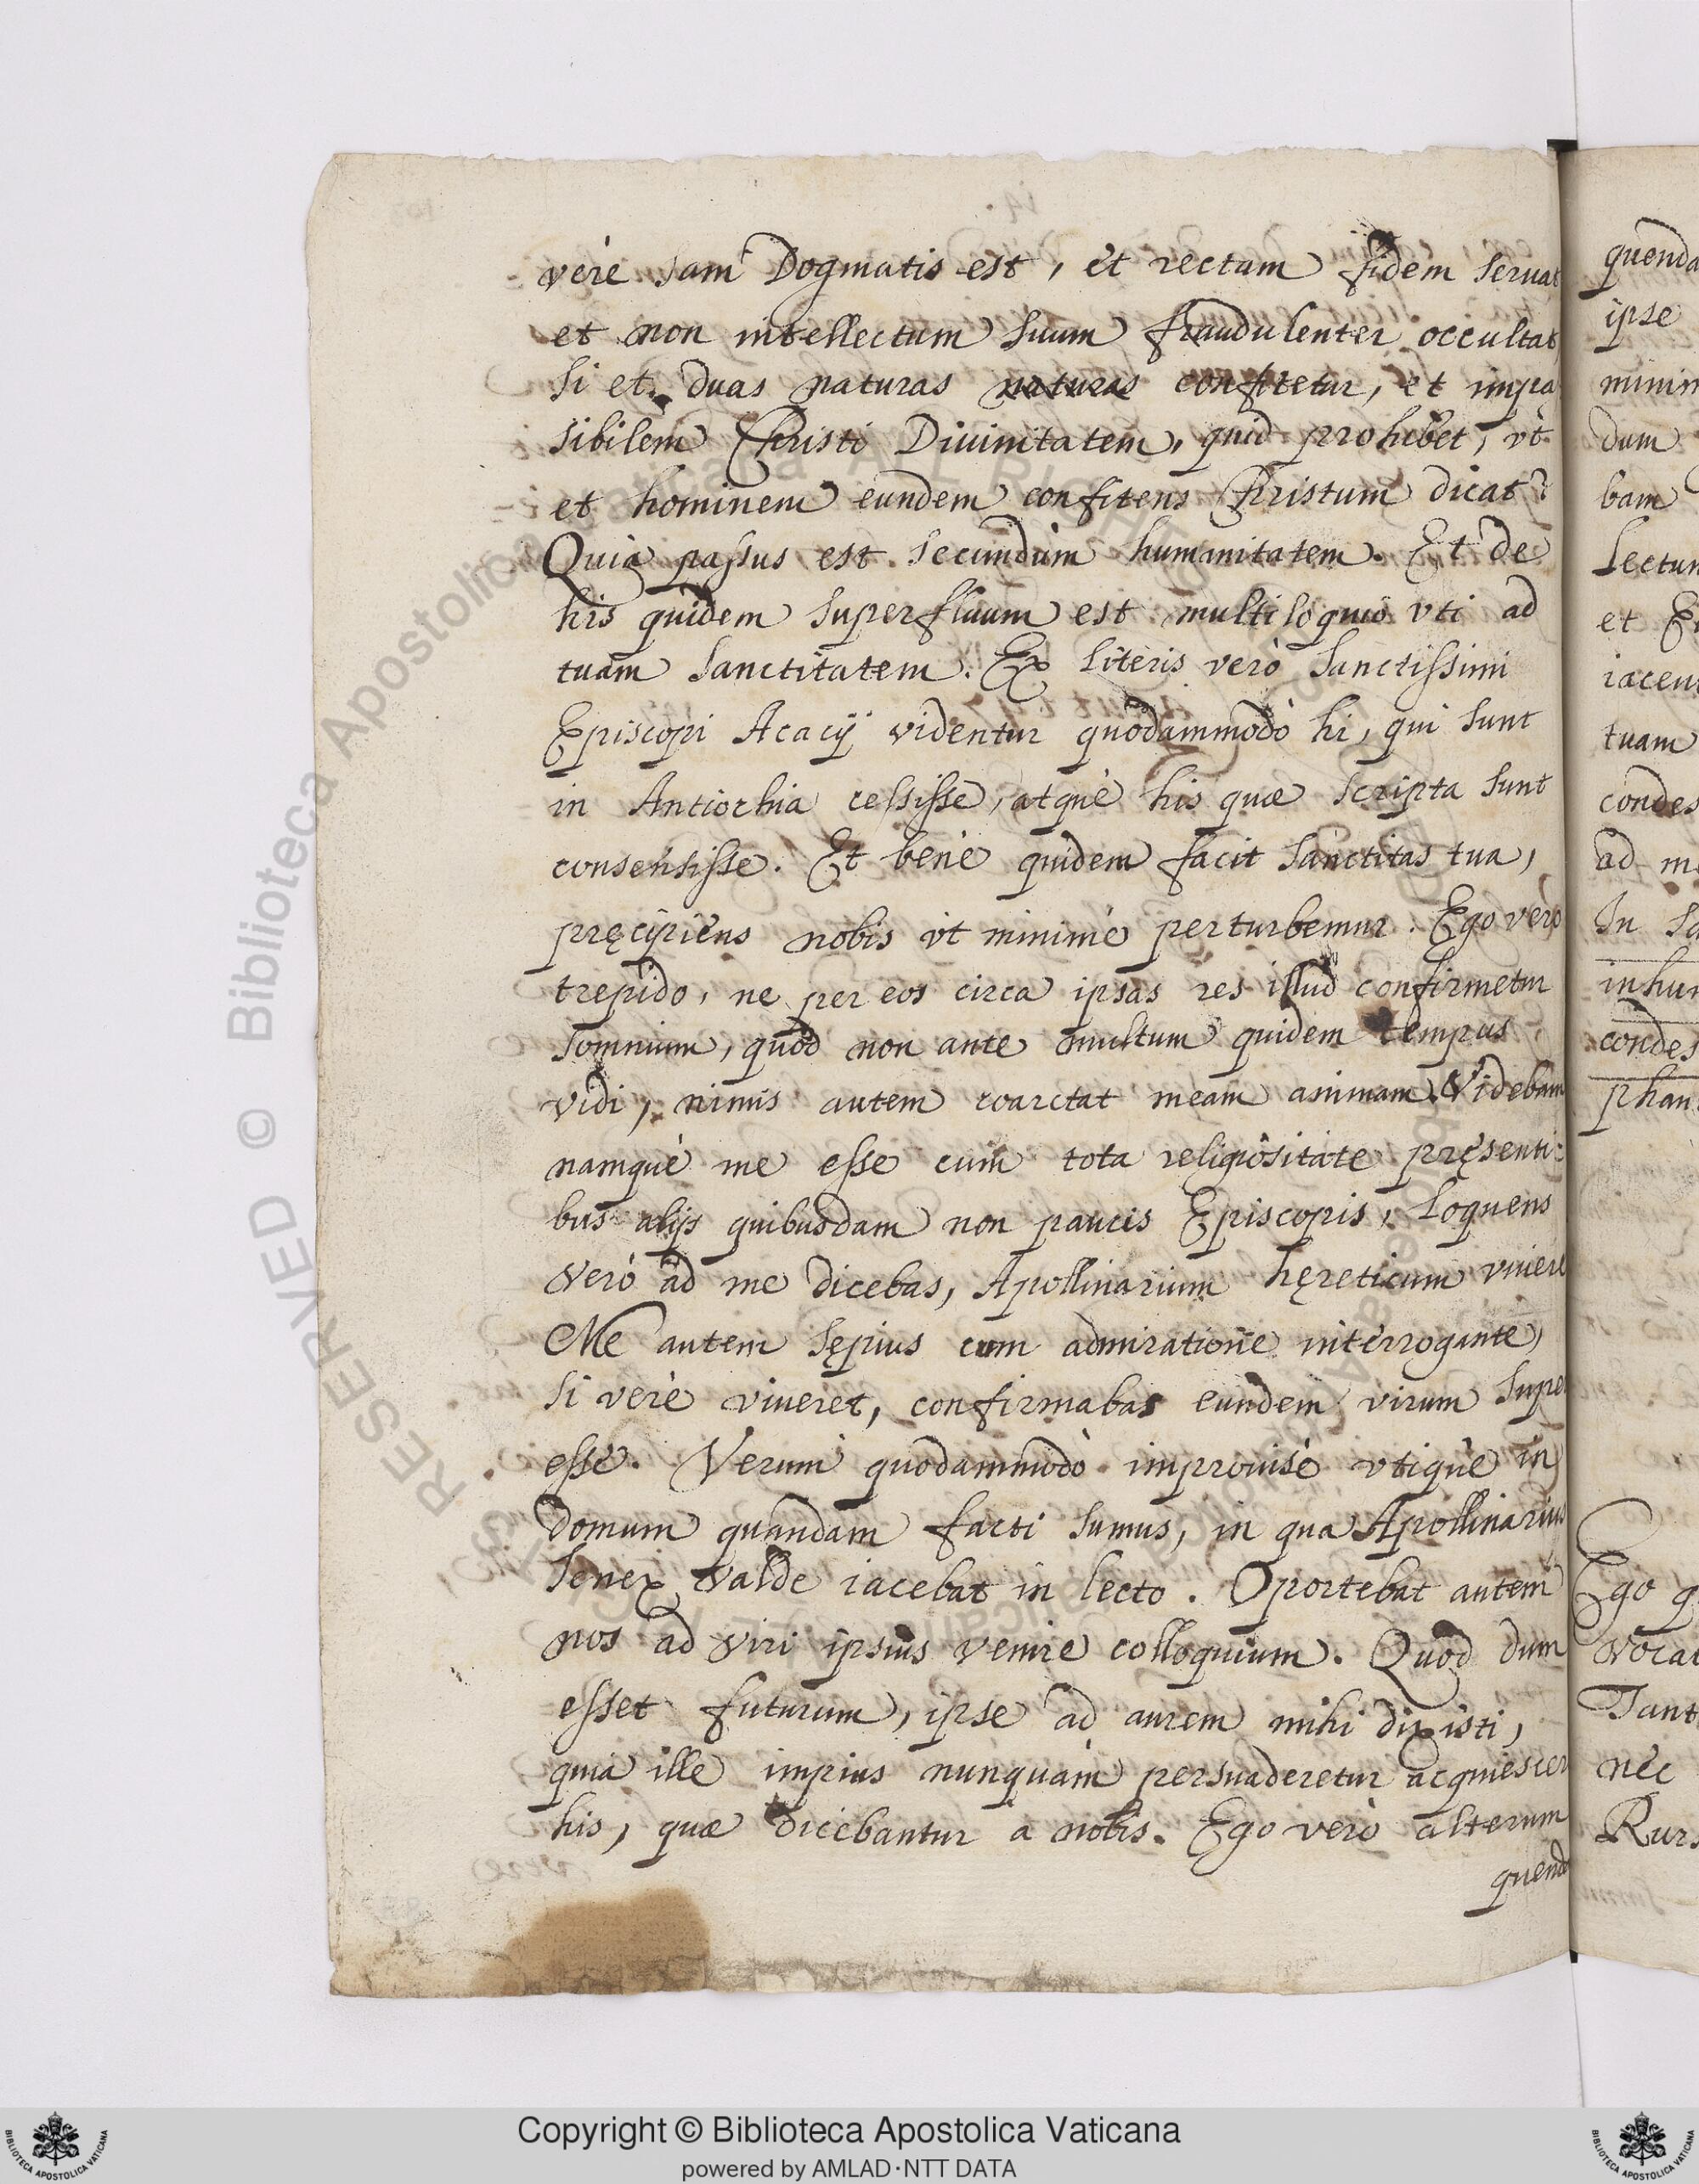 verè sani Dogmatis est, et rectam fidem seruat
et non intellectum suum fraudulenter occultat,
si et duas naturas naturas confitetur, et impa
sibilem Christi Diuinitatem, quid prohibet, vt
et hominem eundem confitens Christum dicat?
Quia passus est secundùm humanitatem. Et de
his quidem superfluum est multiloquio vti ad
tuam sanctitatem. Ex literis verò sanctissimi
Episcopi Acacij videntur quodammodò hi, qui sunt
in Antiochia cessisse, atquè his quæ scripta sunt
consensisse. Et benè quidem facit sanctitas tua,
pręcipiens nobis vt minimè perturbemur. Ego verò
trepido, ne per eos circa ipsas res illud confirmetur
somnium, quod non ante multum quidem tempus
vidi, nimis autem coarctat meam animam. Videbam
namquè me esse cum tota religiositate pręsenti
bus alijs quibusdam non paucis Episcopis, Loquens
verò ad me dicebas, Apollinarium hęreticum viuere
Me autem sępius cum admiratione interrogante,
si verè viueret, confirmabas eundem virum supe
esse. Verum quodammodò improuisè vtiquè in
domum quandam facti sumus, in qua Apollinarius
senex valde iacebat in lecto. Oportebat autem
nos ad viri ipsius venire colloquium. Quod dum
esset futurum, ipse ad aurem mihi dixisti,
quia ille impius nunquàm persuaderetur acquiescer
his, quæ dicebantur a nobis. Ego verò alterum
quend
quenda
ipse
minim
dum
bam
Lectum
et
iacen
tuam
condes
ad me
In
inhum
condes
phan
Ego q
vocat
Tant
nec
Rurs
RESERVED © Biblioteca Apostolica Vaticana
Copyright © Biblioteca Apostolica Vaticana
powered by AMLAD·NTT DATA
BIBLIOTECA APOSTOLICA VATICANA
BIBLIOTECA APOSTOLICA VATICANA